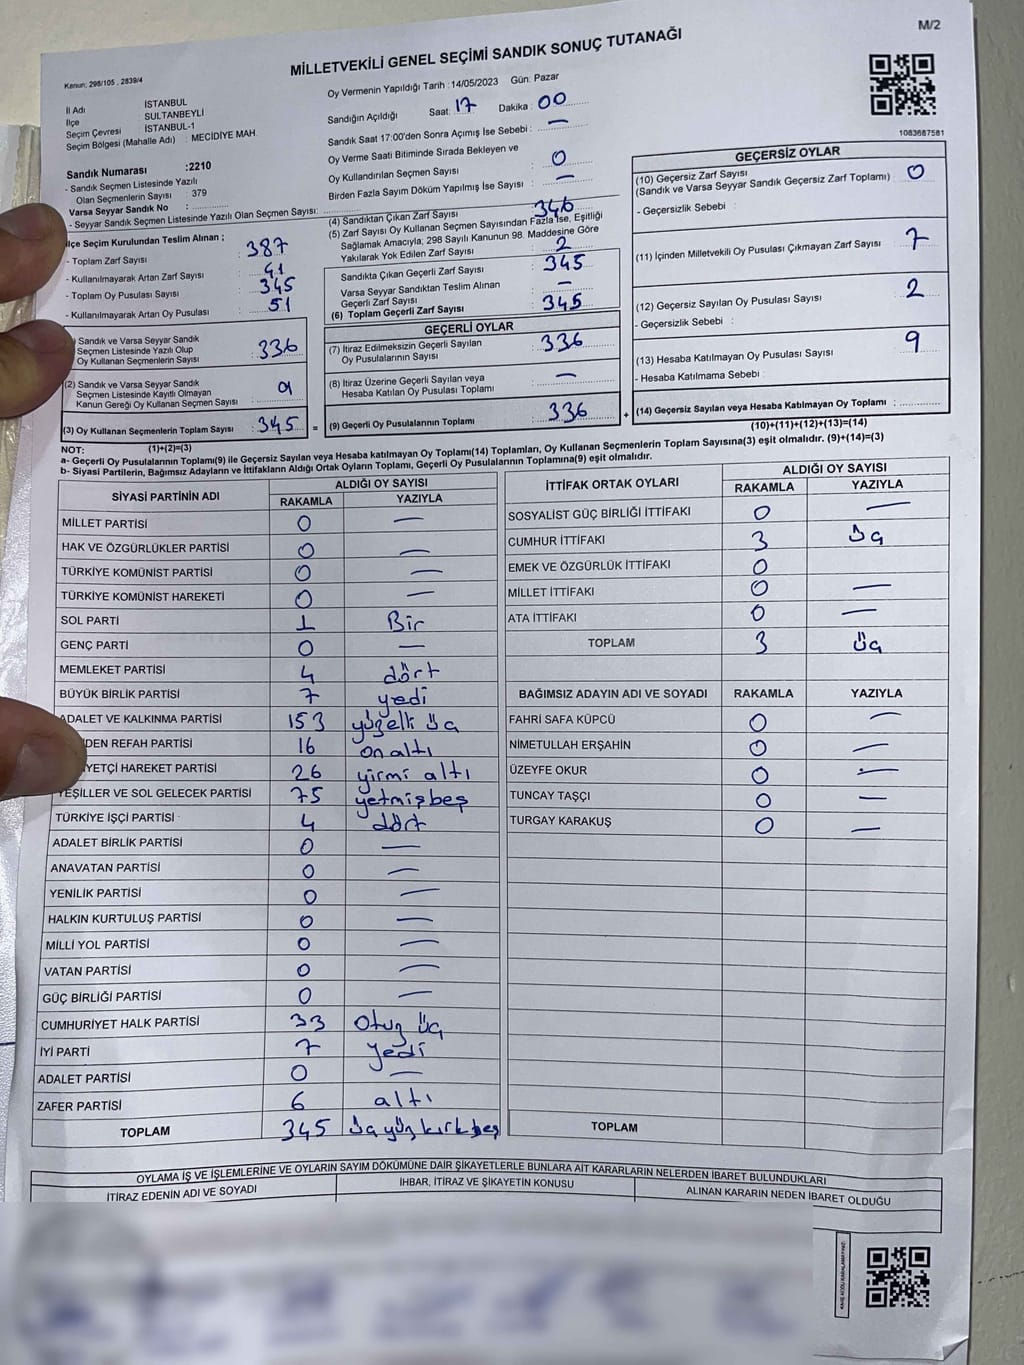 M/2
MİLLETVEKİLİ GENEL SEÇİMİ SANDIK SONUÇ TUTANAĞI
Kanun; 298/105 , 2839/4
Oy Vermenin Yapıldığı Tarih : 14/05/2023 Gün: Pazar
İl Adı İSTANBUL
İlçe SULTANBEYLİ
Seçim Çevresi İSTANBUL-1
Seçim Bölgesi (Mahalle Adı) : MECİDİYE MAH.
Sandık Numarası :2210
- Sandık Seçmen Listesinde Yazılı
Olan Seçmenlerin Sayısı : 379
Varsa Seyyar Sandık No :
- Seyyar Sandık Seçmen Listesinde Yazılı Olan Seçmen Sayısı:
İlçe Seçim Kurulundan Teslim Alınan ;
- Toplam Zarf Sayısı : 387
- Kullanılmayarak Artan Zarf Sayısı : 41
- Toplam Oy Pusulası Sayısı : 345
- Kullanılmayarak Artan Oy Pusulası : 51
Sandık ve Varsa Seyyar Sandık
Seçmen Listesinde Yazılı Olup
Oy Kullanan Seçmenlerin Sayısı : 336
(2) Sandık ve Varsa Seyyar Sandık
Seçmen Listesinde Kayıtlı Olmayan
Kanun Gereği Oy Kullanan Seçmen Sayısı : 9
(3) Oy Kullanan Seçmenlerin Toplam Sayısı : 345
(1)+(2)=(3)
Sandığın Açıldığı Saat: 17 Dakika : 00
Sandık Saat 17:00'den Sonra Açımış İse Sebebi : —
Oy Verme Saati Bitiminde Sırada Bekleyen ve
Oy Kullandırılan Seçmen Sayısı : 0
Birden Fazla Sayım Döküm Yapılmış İse Sayısı : —
(4) Sandıktan Çıkan Zarf Sayısı 346
(5) Zarf Sayısı Oy Kullanan Seçmen Sayısından Fazla İse, Eşitliği
Sağlamak Amacıyla; 298 Sayılı Kanunun 98. Maddesine Göre
Yakılarak Yok Edilen Zarf Sayısı : 2
Sandıkta Çıkan Geçerli Zarf Sayısı : 345
Varsa Seyyar Sandıktan Teslim Alınan
Geçerli Zarf Sayısı : —
(6) Toplam Geçerli Zarf Sayısı : 345
GEÇERLİ OYLAR
(7) İtiraz Edilmeksizin Geçerli Sayılan
Oy Pusulalarının Sayısı : 336
(8) İtiraz Üzerine Geçerli Sayılan veya
Hesaba Katılan Oy Pusulası Toplamı : —
= (9) Geçerli Oy Pusulalarının Toplamı : 336 +
1083687581
GEÇERSİZ OYLAR
(10) Geçersiz Zarf Sayısı
(Sandık ve Varsa Seyyar Sandık Geçersiz Zarf Toplamı) : 0
- Geçersizlik Sebebi :
(11) İçinden Milletvekili Oy Pusulası Çıkmayan Zarf Sayısı : 7
(12) Geçersiz Sayılan Oy Pusulası Sayısı : 2
- Geçersizlik Sebebi :
(13) Hesaba Katılmayan Oy Pusulası Sayısı : 9
- Hesaba Katılmama Sebebi :
(14) Geçersiz Sayılan veya Hesaba Katılmayan Oy Toplamı :
(10)+(11)+(12)+(13)=(14)
NOT:
a- Geçerli Oy Pusulalarının Toplamı(9) ile Geçersiz Sayılan veya Hesaba Katılmayan Oy Toplamı(14) Toplamları, Oy Kullanan Seçmenlerin Toplam Sayısına(3) eşit olmalıdır. (9)+(14)=(3)
b- Siyasi Partilerin, Bağımsız Adayların ve İttifakların Aldığı Ortak Oyların Toplamı, Geçerli Oy Pusulalarının Toplamına(9) eşit olmalıdır.
SİYASİ PARTİNİN ADI ALDIĞI OY SAYISI
RAKAMLA YAZIYLA
MİLLET PARTİSİ 0 —
HAK VE ÖZGÜRLÜKLER PARTİSİ 0 —
TÜRKİYE KOMÜNİST PARTİSİ 0 —
TÜRKİYE KOMÜNİST HAREKETİ 0 —
SOL PARTİ 1 Bir
GENÇ PARTİ 0 —
MEMLEKET PARTİSİ 4 dört
BÜYÜK BİRLİK PARTİSİ 7 yedi
ADALET VE KALKINMA PARTİSİ 153 yüzelli üç
DEN REFAH PARTİSİ 16 on altı
YETÇİ HAREKET PARTİSİ 26 yirmi altı
YEŞİLLER VE SOL GELECEK PARTİSİ 75 yetmişbeş
TÜRKİYE İŞÇİ PARTİSİ 4 dört
ADALET BİRLİK PARTİSİ 0 —
ANAVATAN PARTİSİ 0 —
YENİLİK PARTİSİ 0 —
HALKIN KURTULUŞ PARTİSİ 0 —
MİLLİ YOL PARTİSİ 0 —
VATAN PARTİSİ 0 —
GÜÇ BİRLİĞİ PARTİSİ 0 —
CUMHURİYET HALK PARTİSİ 33 otuz üç
İYİ PARTİ 7 yedi
ADALET PARTİSİ 0 —
ZAFER PARTİSİ 6 altı
TOPLAM 345 üçyüzkırkbeş
İTTİFAK ORTAK OYLARI ALDIĞI OY SAYISI
RAKAMLA YAZIYLA
SOSYALİST GÜÇ BİRLİĞİ İTTİFAKI 0 —
CUMHUR İTTİFAKI 3 üç
EMEK VE ÖZGÜRLÜK İTTİFAKI 0
MİLLET İTTİFAKI 0 —
ATA İTTİFAKI 0 —
TOPLAM 3 üç
BAĞIMSIZ ADAYIN ADI VE SOYADI RAKAMLA YAZIYLA
FAHRİ SAFA KÜPCÜ 0 —
NİMETULLAH ERŞAHİN 0 —
ÜZEYFE OKUR 0 —
TUNCAY TAŞÇI 0 —
TURGAY KARAKUŞ 0 —
TOPLAM
OYLAMA İŞ VE İŞLEMLERİNE VE OYLARIN SAYIM DÖKÜMÜNE DAİR ŞİKAYETLERLE BUNLARA AİT KARARLARIN NELERDEN İBARET BULUNDUKLARI
İTİRAZ EDENİN ADI VE SOYADI İHBAR, İTİRAZ VE ŞİKAYETİN KONUSU ALINAN KARARIN NEDEN İBARET OLDUĞU